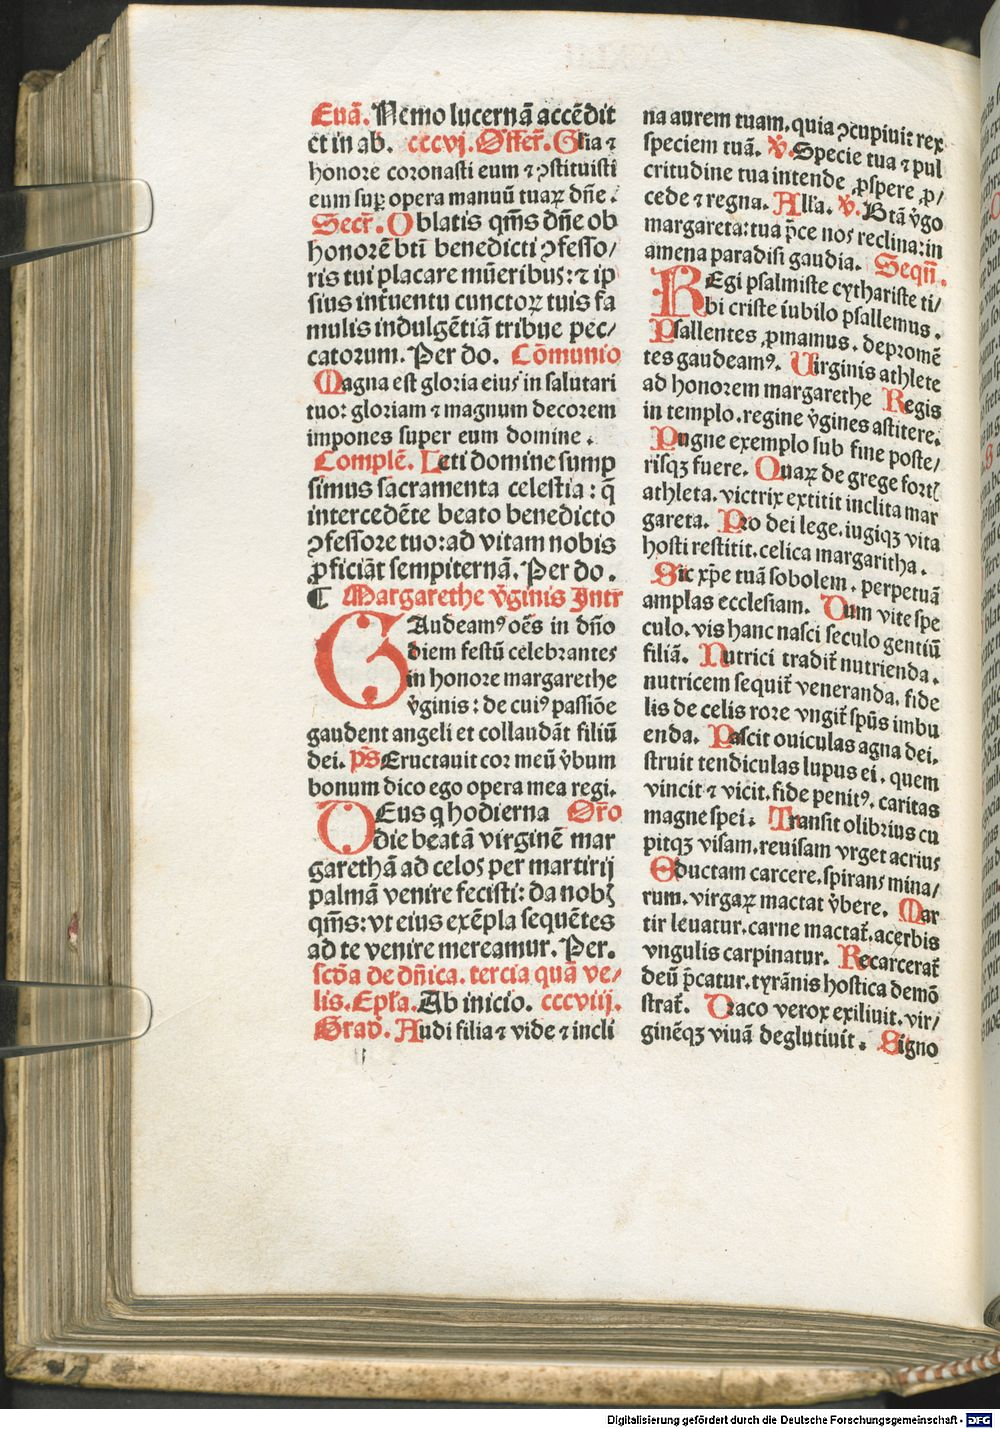 Euā. Nemo lucernā accēdit
et in ab. cccvj. Offer̄. Gl̄ia ⁊
honore coronasti eum ⁊ ꝯstituisti
eum sup̱ opera manuū tuaꝝ dn̄e.
Secr̄. Oblatis qm̄s dn̄e ob
honorē bt̄i benedicti ꝯfesso/
ris tui placare mūeribus: ⁊ ip
sius int̄uentu cunctoꝝ tuis fa
mulis indulgētiā tribue pec/
catorum. Per do. Cōmunio
Magna est gloria eius in salutari
tuo: gloriam ⁊ magnum decorem
impones super eum domine.
Complē. Leti domine sump
simus sacramenta celestia: q̄
intercedēte beato benedicto
ꝯfessore tuo: ad vitam nobis
ꝓficiāt sempiternā. Per do.
¶ Margarethe v̄ginis Intr̄
GAudeamꝰ oēs in dn̄o
diem festū celebrantes
in honore margarethe
v̄ginis: de cuiꝰ passiōe
gaudent angeli et collaudāt filiū
dei. ps̄ Eructauit cor meū v̄bum
bonum dico ego opera mea regi.
DEus q hodierna Or̄o
die beatā virginē mar
garethā ad celos per martirij
palmā venire fecisti: da nobꝫ
qm̄s: vt eius exēpla sequētes
ad te venire mereamur. Per.
scd̄a de dn̄ica. tercia quā ve/
lis. Ep̄ła. Ab inicio. cccviij.
Grad̄. Audi filia ⁊ vide ⁊ incli
na aurem tuam, quia ꝯcupiuit rex
speciem tuā. v̄. Specie tua ⁊ pul
critudine tua intende ꝓspere ꝓ/
cede ⁊ regna. All̄a. v̄. Btā v̄go
margareta: tua p̄ce nos reclina: in
amena paradisi gaudia. Seqn̄.
REgi psalmiste cythariste ti/
bi criste iubilo psallemus.
Psallentes ꝓmamus. depromē
tes gaudeamꝰ. Uirginis athlete
ad honorem margarethe Regis
in templo. regine v̄gines astitere.
Pugne exemplo sub fine poste/
risqꝫ fuere. Quaꝝ de grege forti
athleta. victrix extitit inclita mar
gareta. Pro dei lege. iugiqꝫ vita
hosti restitit. celica margaritha.
Sic xp̄e tuā sobolem. perpetuā
amplas ecclesiam. Dum vite spe
culo. vis hanc nasci seculo gentiū
filiā. Nutrici tradit̄ nutrienda.
nutricem sequit̄ veneranda. fide
lis de celis rore vngit̄ sp̄us imbu
enda. Pascit ouiculas agna dei.
struit tendiculas lupus ei. quem
vincit ⁊ vicit. fide penitꝰ. caritas
magne spei. Transit olibrius cu
pitqꝫ visam. reuisam vrget acrius
Eductam carcere. spirans mina/
rum. virgaꝝ mactat v̄bere. Mar
tir leuatur. carne mactat̄. acerbis
vngulis carpinatur. Recarcerat̄
deū p̄catur. tyrānis hostica demō
strat̄. Draco verox exiliuit. vir/
ginēqꝫ viuā deglutiuit. Signo
Digitalisierung gefördert durch die Deutsche Forschungsgemeinschaft - DFG